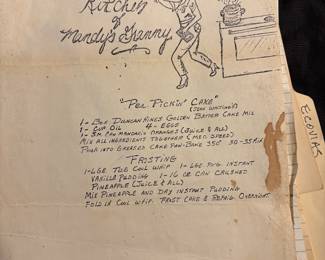 Kitchen
of
Mandy's Granny
"Pea Pickin' Cake"
1 - Box Duncan Hines Golden Butter Cake Mix
1 - Cup Oil 4 - Eggs
Can Mandarin Oranges (Juice & All)
Mix all ingredients together (Med. Speed)
Pour into Greased Cake Pan - Bake 350° 30-35 Min
Frosting
1 - LGE Tub Cool Whip 1 - LGE Pkg Instant
Vanilla Pudding 1 - 16 oz Can Crushed
Pineapple (Juice & All)
Mix Pineapple and Dry Instant Pudding
Fold in Cool Whip. Frost Cake & Refrig. Overnight